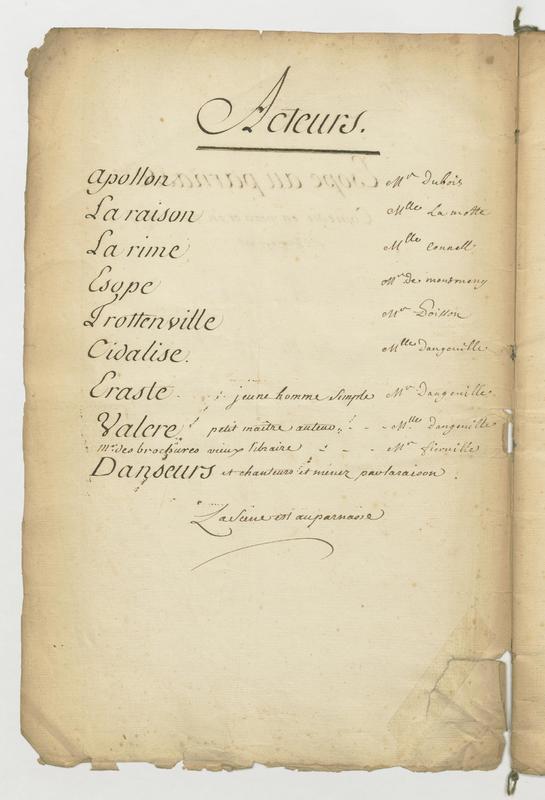 Acteurs.
apollon Mr Dubois
La raison Mlle La motte
La rime Mlle Connell
Esope Mr de montmeny
Trottenville Mr Poisson
Cidalise. Mlle dangeville
Eraste jeune homme simple Mr Dangeville
Valere petit maître auteur Mlle dangeville
mr des brochures vieux libraire Mr fierville
Danseurs et chanteurs et menez par la raison.
La Scene est au parnasse